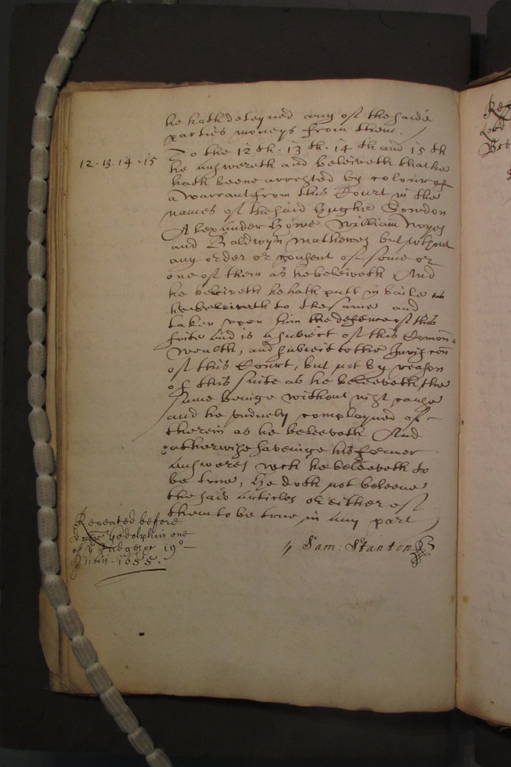 he hath detayned any of the saide
parties moneys from them.
12. 13. 14. 15
To the 12th. 13th. 14th and 15th
he answereth and beleiveth that hee
hath beene arrested by colour of
a warrant from this Court in the
names of the said Hughe Sowdon
Alexander Howe William
and Baldwyn Mathewes but wthout
any order or consent of some or
one of them as he beleiveth And
he beleiveth he hath putt in baile
to the same and
taken upon him the defence of this
suite And is a subiect of this Common
wealth, and subiect to the Jurisdiccon
of this Court, but not by reason
of this suite as he beleeveth the
same beinge without just cause
and he unduely complayned of
therein as he beleeveth And
otherwise haveinge his former
answeres wch he beleeveth to
be true, He doth not beleeve
the said articles or either of
them to be true in any part
Sam: Stanton
Repeated before
Godolphin one
of ye Judges 19o
1655.